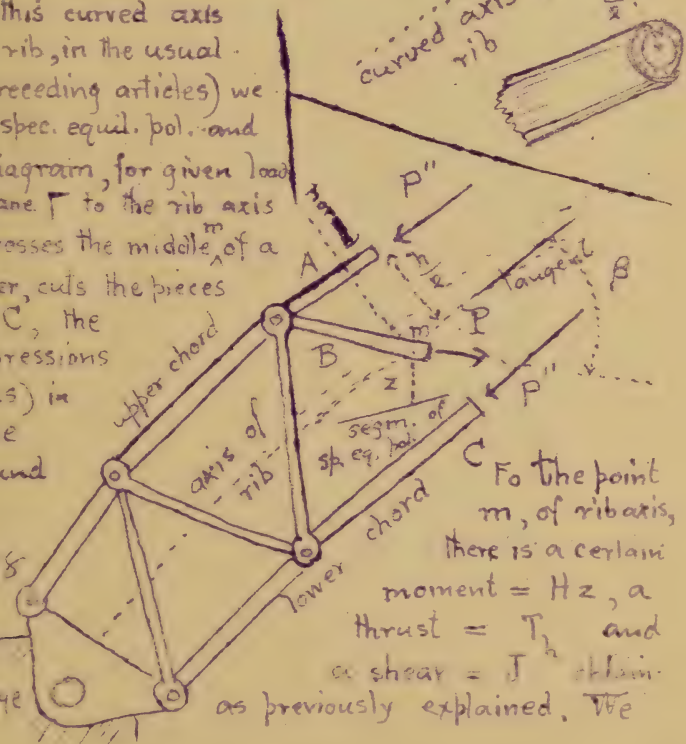 this curved axis
rib, in the usual
receding articles) we
spec. equil. pol. and
iagram, for given load
ane Γ to the rib axis
osses the middle m of a
er, cuts the pieces
C, the
pressions
s) in
e
und
curved axis
rib
nor
P"
n/2
tangent
β
A
m
P
B
z
P"
upper chord
axis of
rib
segm. of
sp. eq. pol.
C
lower
chord
Fo the point
m, of rib axis,
there is a certain
moment = Hz, a
thrust = Th and
a shear = J
as previously explained. We